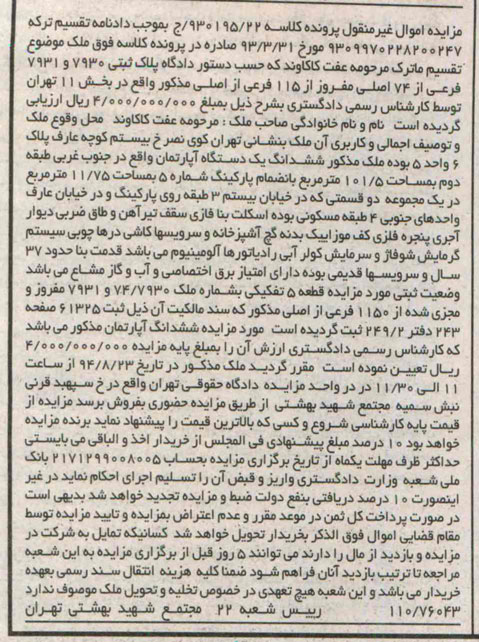 مزایده اموال غیرمنقول پرونده کلاسه ۹۳۰۱۹۵/۲۲/ج بموجب دادنامه تقسیم ترکه
۹۳۰۹۹۷۰۲۲۸۲۰۰۲۴۷ مورخ ۹۳/۳/۳۱ صادره در پرونده کلاسه فوق ملک موضوع
تقسیم ماترک مرحومه عفت کاکاوند که حسب دستور دادگاه پلاک ثبتی ۷۹۳۰ و ۷۹۳۱
فرعی از ۷۴ اصلی مفروز از ۱۱۵ فرعی از اصلی مذکور واقع در بخش ۱۱ تهران
توسط کارشناس رسمی دادگستری بشرح ذیل بمبلغ ۴/۰۰۰/۰۰۰/۰۰۰ ریال ارزیابی
گردیده است نام و نام خانوادگی صاحب ملک : مرحومه عفت کاکاوند محل وقوع ملک
و توصیف اجمالی و کاربری آن ملک بنشانی تهران کوی نصر خ بیستم کوچه عارف پلاک
۶ واحد ۵ بوده ملک مذکور ششدانگ یک دستگاه آپارتمان واقع در جنوب غربی طبقه
دوم بمساحت ۱۰۱/۵ مترمربع بانضمام پارکینگ شماره ۵ بمساحت ۱۱/۷۵ مترمربع
در یک مجموعه دو قسمتی که در خیابان بیستم ۳ طبقه روی پارکینگ و در خیابان عارف
واحدهای جنوبی ۴ طبقه مسکونی بوده اسکلت بنا فلزی سقف تیرآهن و طاق ضربی دیوار
آجری پنجره فلزی کف موزاییک بدنه گچ آشپزخانه و سرویسها کاشی درها چوبی سیستم
گرمایش شوفاژ و سرمایش کولر آبی رادیاتورها آلومینیوم می باشد قدمت بنا حدود ۳۷
سال و سرویسها قدیمی بوده دارای امتیاز برق اختصاصی و آب و گاز مشاع می باشد
وضعیت ثبتی مورد مزایده قطعه ۵ تفکیکی بشماره ملک ۷۴/۷۹۳۰ و ۷۹۳۱ مفروز و
مجزی شده از ۱۱۵۰ فرعی از اصلی مذکور که سند مالکیت آن ذیل ثبت ۶۱۳۲۵ صفحه
۲۴۳ دفتر ۲۴۹/۲ ثبت گردیده است مورد مزایده ششدانگ آپارتمان مذکور می باشد
که کارشناس رسمی دادگستری ارزش آن را بمبلغ پایه مزایده ۴/۰۰۰/۰۰۰/۰۰۰
ریال تعیین نموده است مقرر گردید ملک مذکور در تاریخ ۹۴/۸/۲۳ از ساعت
۱۱ الی ۱۱/۳۰ در در واحد مزایده دادگاه حقوقی تهران واقع در خ سپهبد قرنی
نبش سمیه مجتمع شهید بهشتی از طریق مزایده حضوری بفروش برسد مزایده از
قیمت پایه کارشناسی شروع و کسی که بالاترین قیمت را پیشنهاد نماید برنده مزایده
خواهد بود ۱۰ درصد مبلغ پیشنهادی فی المجلس از خریدار اخذ و الباقی می بایستی
حداکثر ظرف مهلت یکماه از تاریخ برگزاری مزایده بحساب ۲۱۷۱۲۹۹۰۰۸۰۰۵ بانک
ملی شعبه وزارت دادگستری واریز و قبض آن را تسلیم اجرای احکام نماید در غیر
اینصورت ۱۰ درصد دریافتی بنفع دولت ضبط و مزایده تجدید خواهد شد بدیهی است
در صورت پرداخت کل ثمن در موعد مقرر و عدم اعتراض بمزایده و تایید مزایده توسط
مقام قضایی اموال فوق الذکر بخریدار تحویل خواهد شد کسانیکه تمایل به شرکت در
مزایده و بازدید از مال را دارند می توانند ۵ روز قبل از برگزاری مزایده به این شعبه
مراجعه تا ترتیب بازدید آنان فراهم شود ضمنا کلیه هزینه انتقال سند رسمی بعهده
خریدار می باشد و این شعبه هیچ تعهدی در خصوص تخلیه و تحویل ملک موصوف ندارد
۱۱۰/۷۶۰۴۳ رییس شعبه ۲۲ مجتمع شهید بهشتی تهران